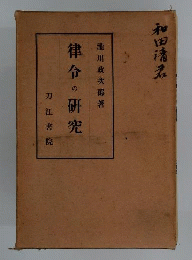 和田清君
瀧川政次郎著
律令の研究
刀江書院